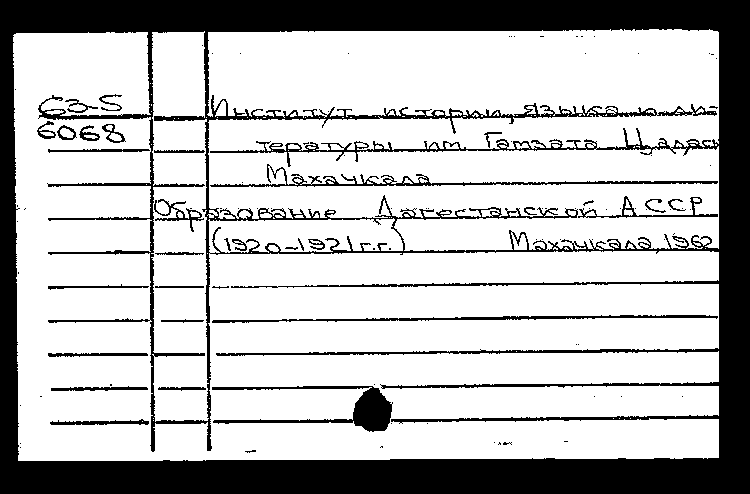 63-5 Институт истории, языка и ли-
6068 тературы им. Гамзата Цадас
Махачкала
Образование Дагестанской АССР
(1920-1921 г.г.) Махачкала, 1962